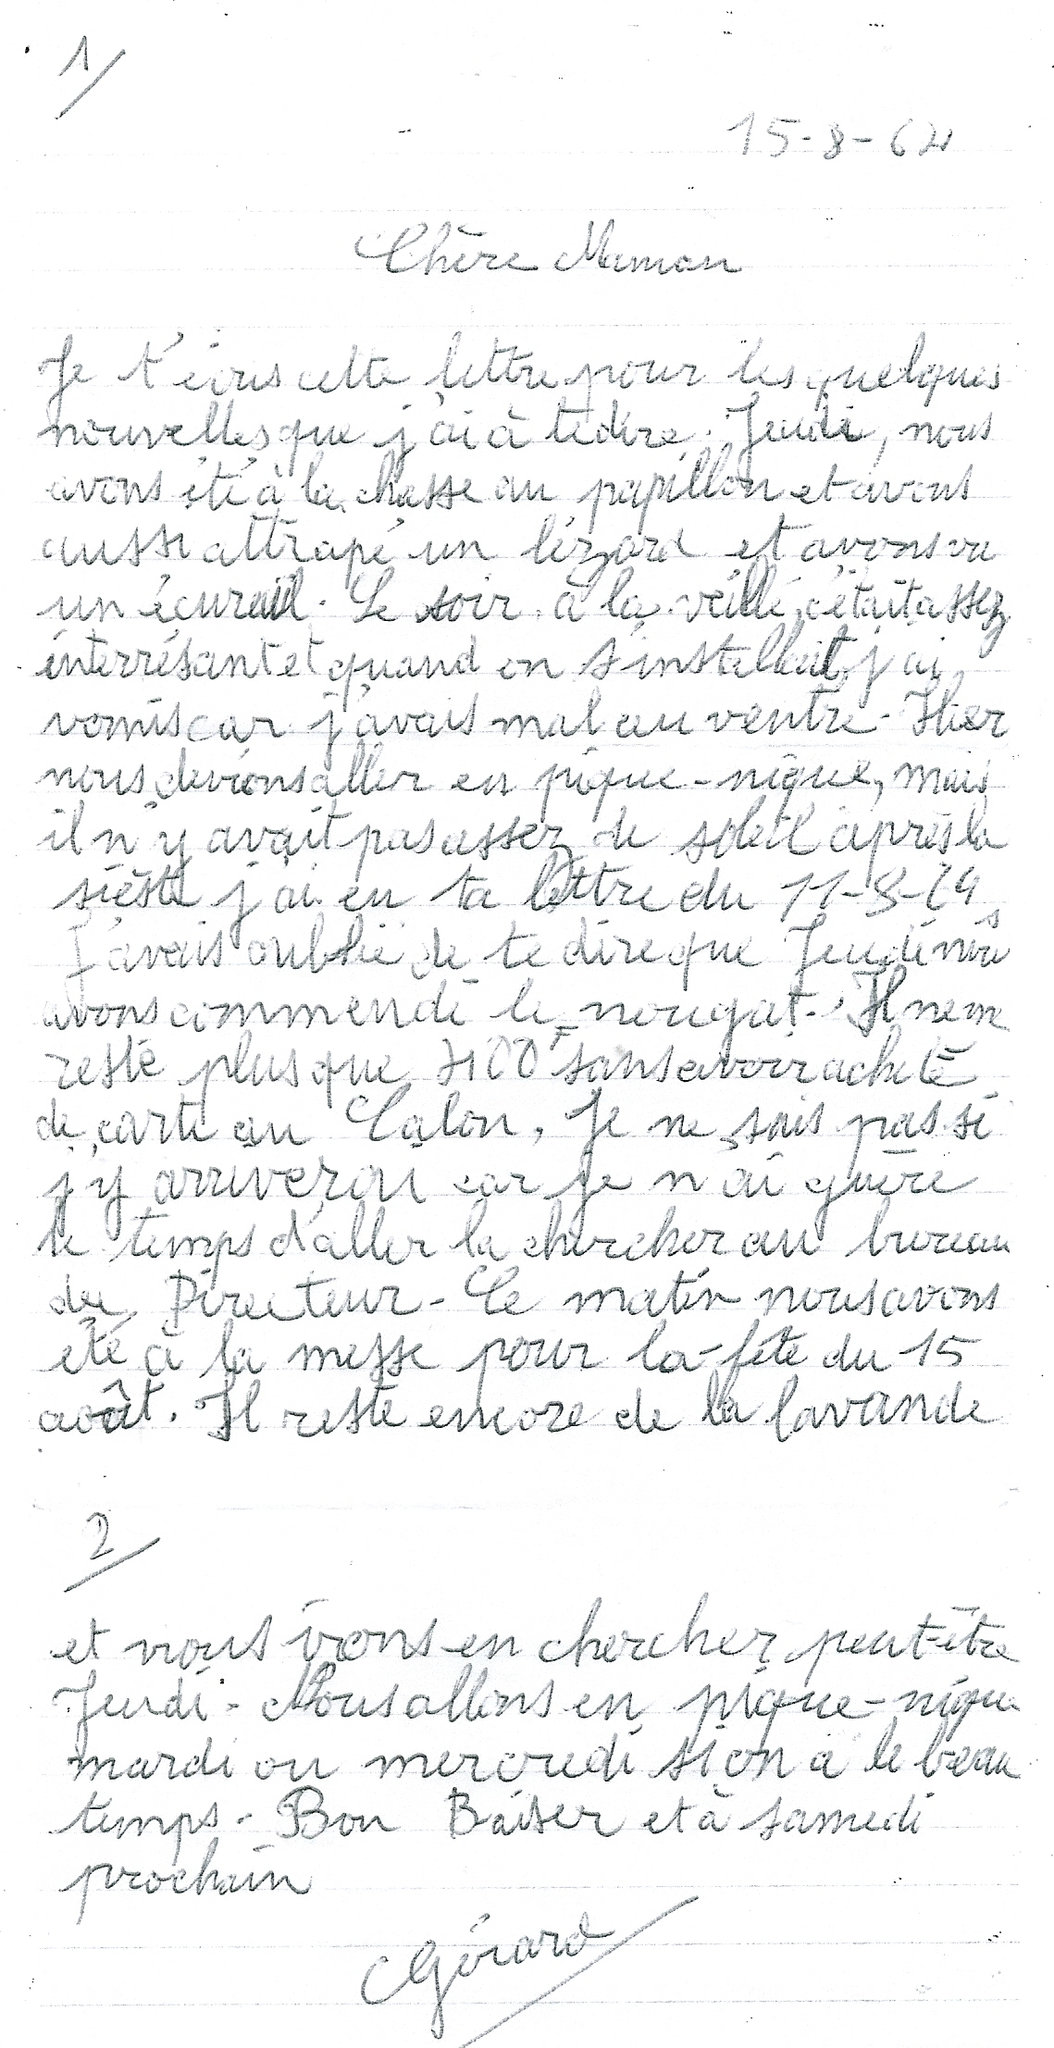 1/
15-8-64
Chère Maman
Je t'écris cette lettre pour les quelques
nouvelles que j'ai à te dire. Jeudi, nous
avons été à la chasse au papillon et avons
aussi attrapé un lézard et avons vu
un écureuil. Le soir à la veillé c'était assez
interrésant et quand on s'installait j'ai
vomis car j'avais mal au ventre. Hier
nous devions aller en pique-nique, mais
il n'y avait pas assez de soleil après la
sièste j'ai eu ta lettre du 11-8-64
J'avais oublié de te dire que Jeudi nous
avons commendé le nougat. Il ne me
reste plus que sans avoir acheté
de carte au Calon, Je ne sais pas si
j'y arriverai car je n'ai guère
le temps d'aller la chercher au bureau
du Directeur. Ce matin nous avons
été à la messe pour la fête du 15
août. Il reste encore de la lavande
2/
et nous irons en chercher peut-être
Jeudi. Nous allons en pique-nique
mardi ou mercredi si on a le beau
temps. Bon Baiser et à samedi
prochain
Gérard